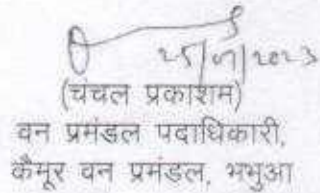 25/07/2023
(चंचल प्रकाशम)
वन प्रमंडल पदाधिकारी,
कैमूर वन प्रमंडल, भभुआ